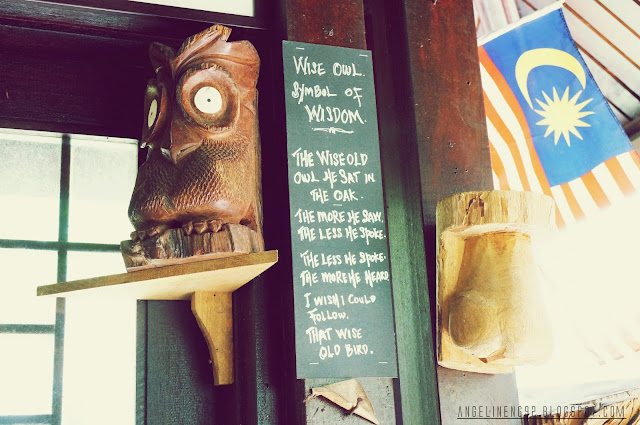 WISE OWL.
SYMBOL OF
WISDOM.
THE WISE OLD
OWL HE SAT IN
THE OAK.
THE MORE HE SAW.
THE LESS HE SPOKE.
THE LESS HE SPOKE.
THE MORE HE HEARD.
I WISH I COULD
FOLLOW.
THAT WISE
OLD BIRD.
ANGELINENG92.BLOGSPOT.COM